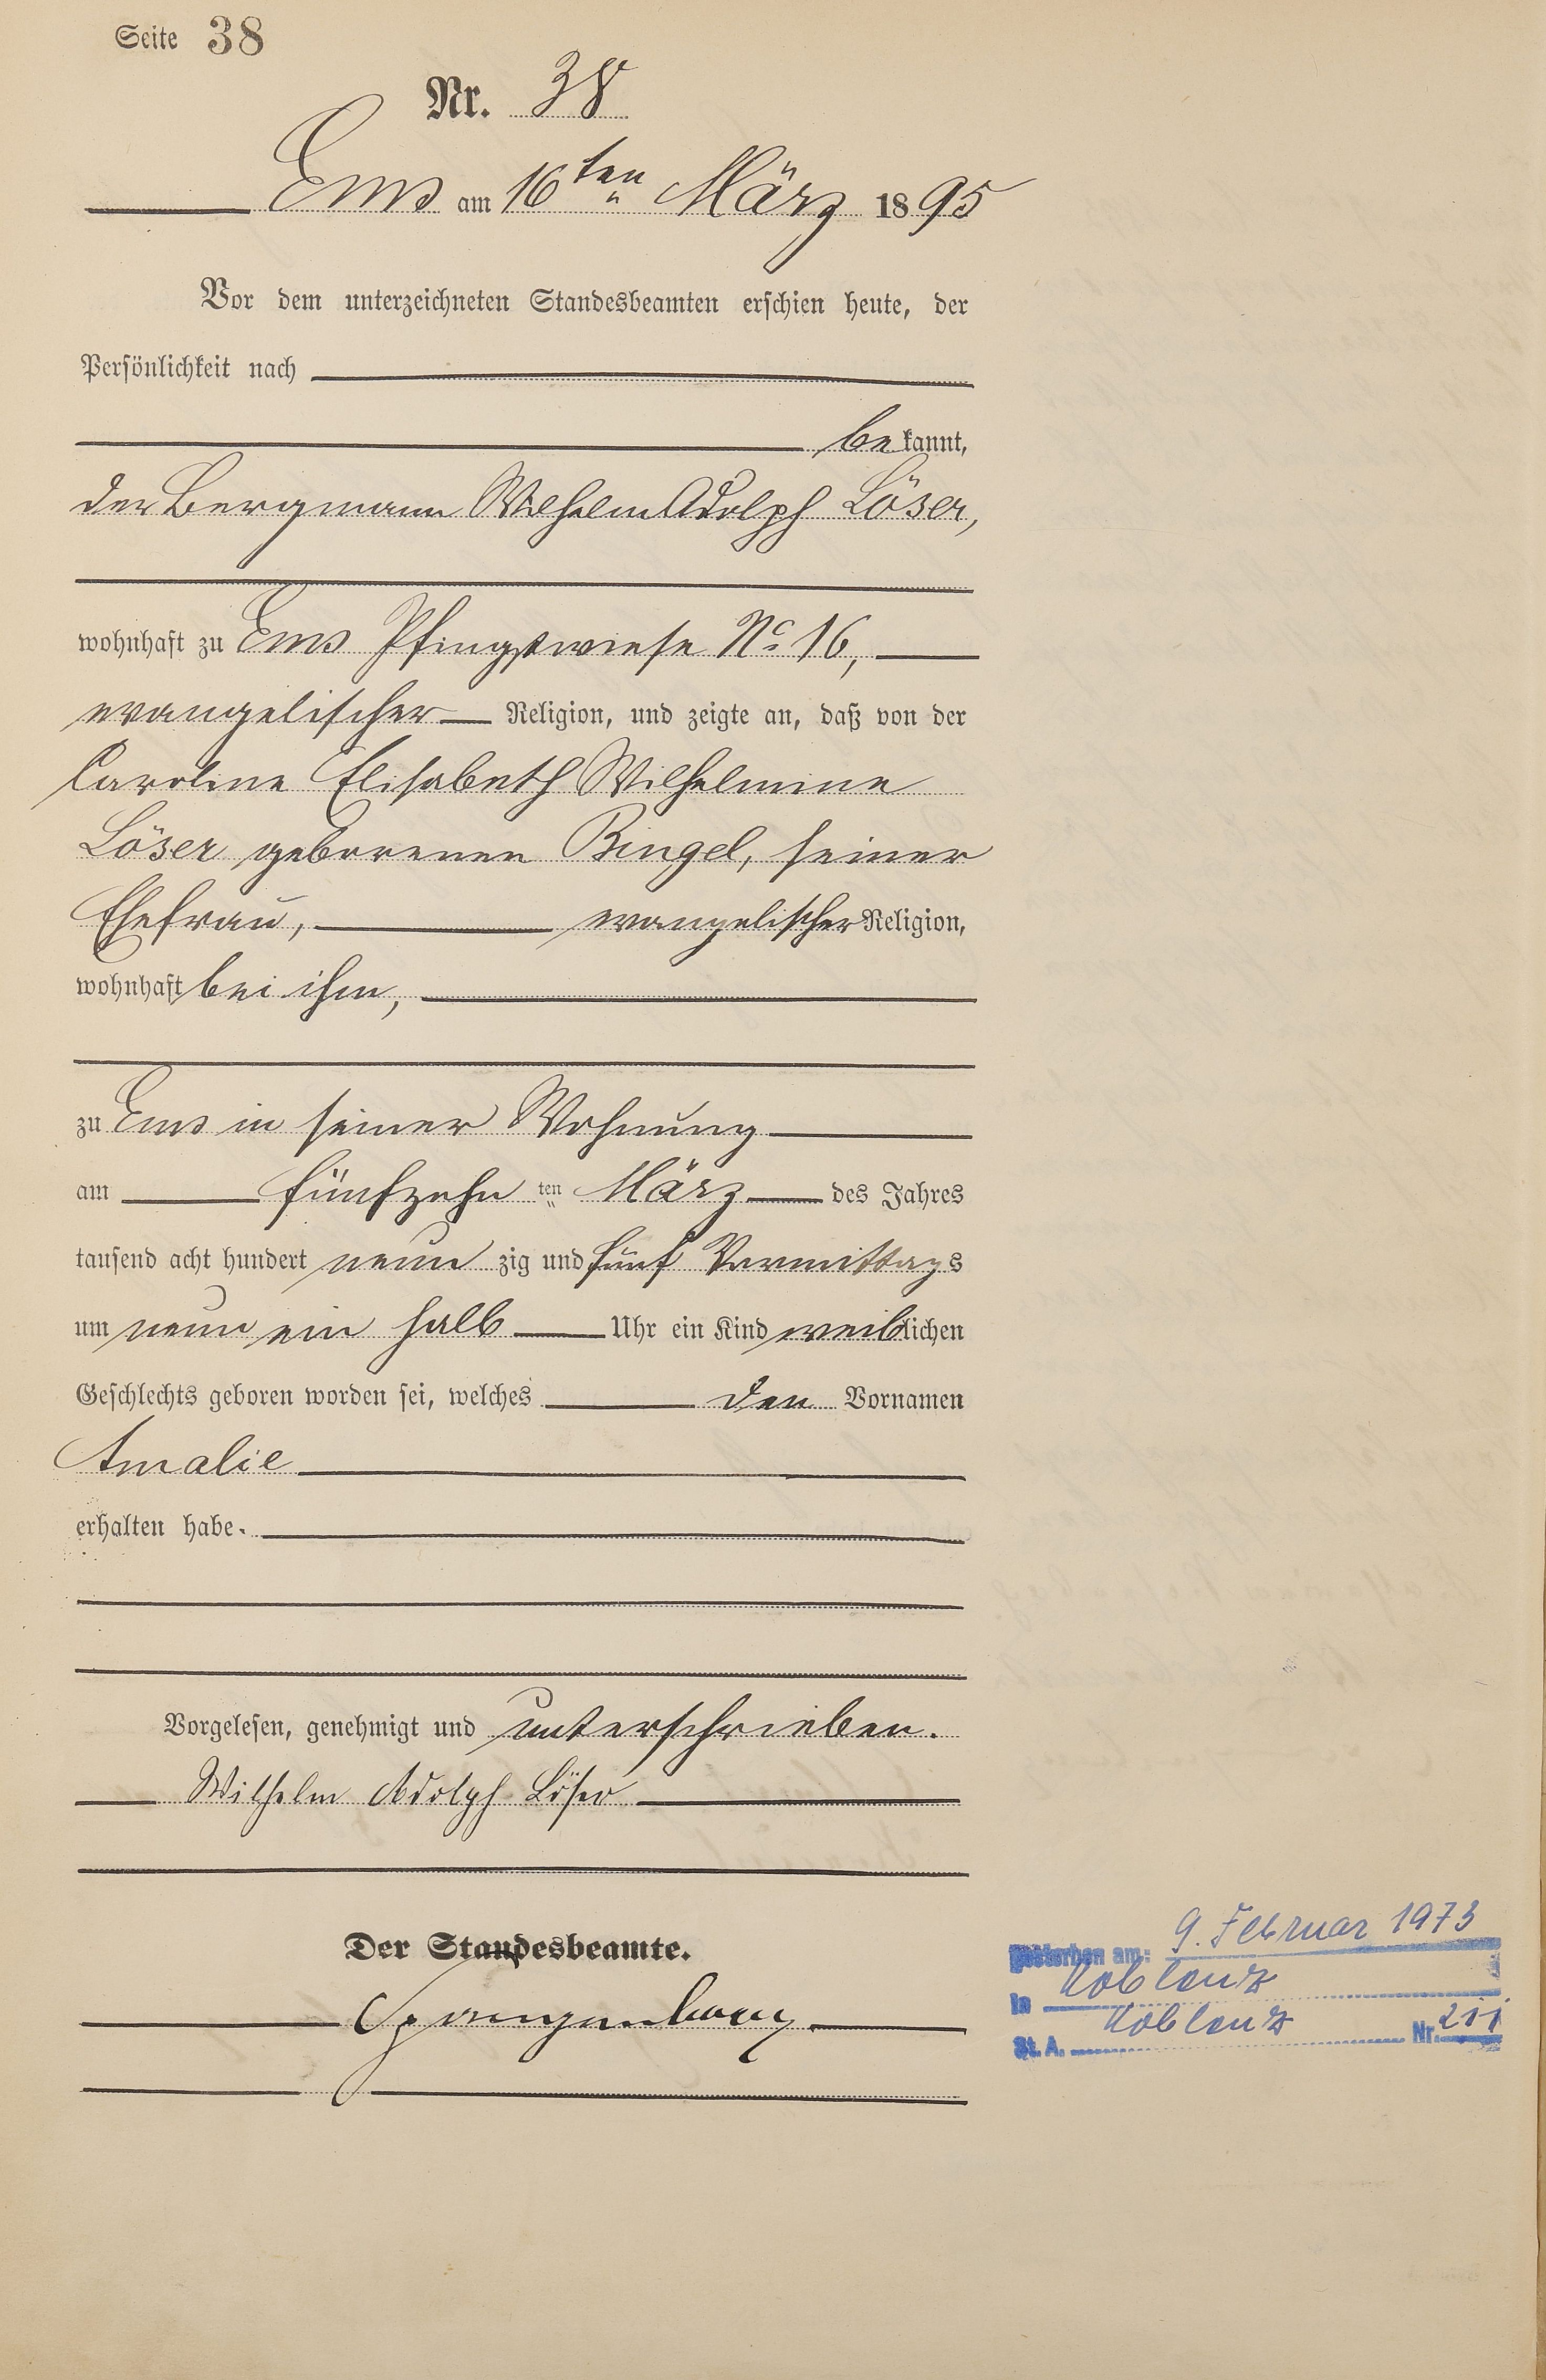 Seite 38
Nr. 38
Ems am 16ten März 1895
Vor dem unterzeichneten Standesbeamten erschien heute, der
Persönlichkeit nach
bekannt,
der Bergmann Wilhelm Adolph Löser,
wohnhaft zu Ems Pfingstwiese No 16,
evangelischer Religion, und zeigte an, daß von der
Caroline Elisabeth Wilhelmine
Löser geborenen Bingel, seiner
Ehefrau, evangelischer Religion,
wohnhaft bei ihm,
zu Ems in seiner Wohnung
am fünfzehnten März des Jahres
tausend acht hundert neunzig und fünf Vormittags
um neun ein halb Uhr ein Kind weiblichen
Geschlechts geboren worden sei, welches den Vornamen
Amalie
erhalten habe.
Vorgelesen, genehmigt und unterschrieben.
Wilhelm Adolph Löser
Der Standesbeamte.
Spangenberg
gestorben am: 9. Februar 1973
in Koblenz
St. A. Koblenz Nr. 211